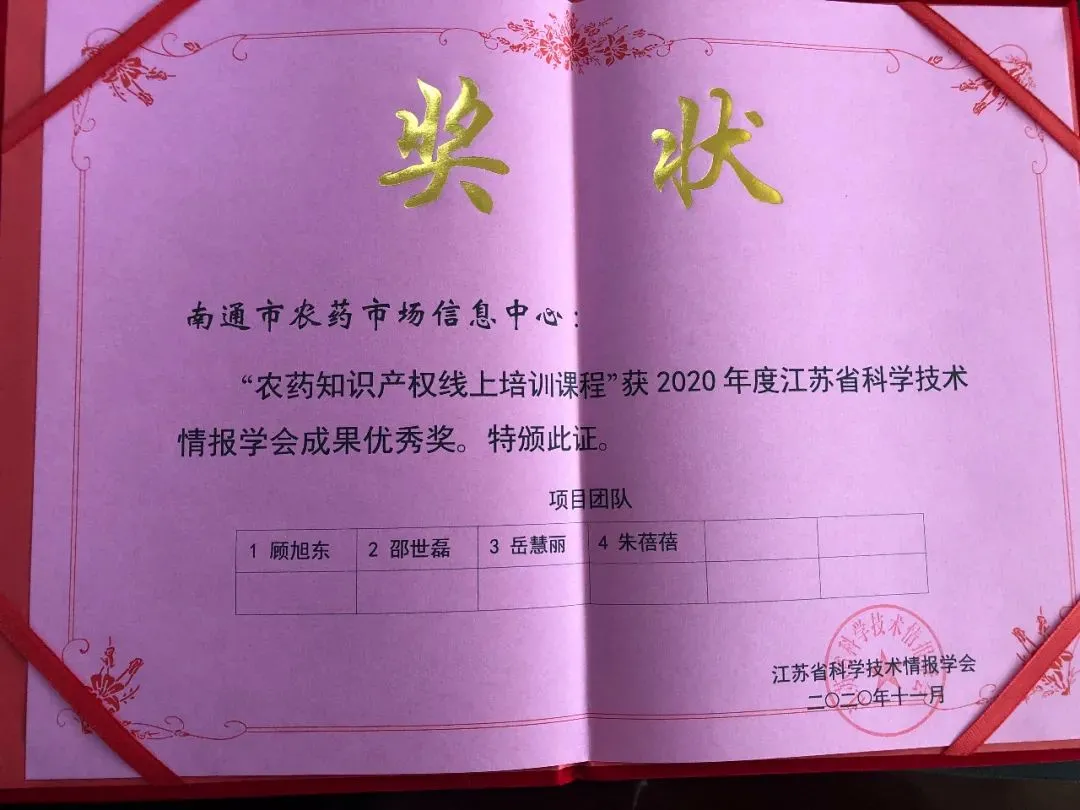 奖 状
南通市农药市场信息中心：
“农药知识产权线上培训课程”获 2020 年度江苏省科学技术
情报学会成果优秀奖。特颁此证。
项目团队
1 顾旭东 2 邵世磊 3 岳慧丽 4 朱蓓蓓
科学技术情报
江苏省科学技术情报学会
二〇二〇年十一月